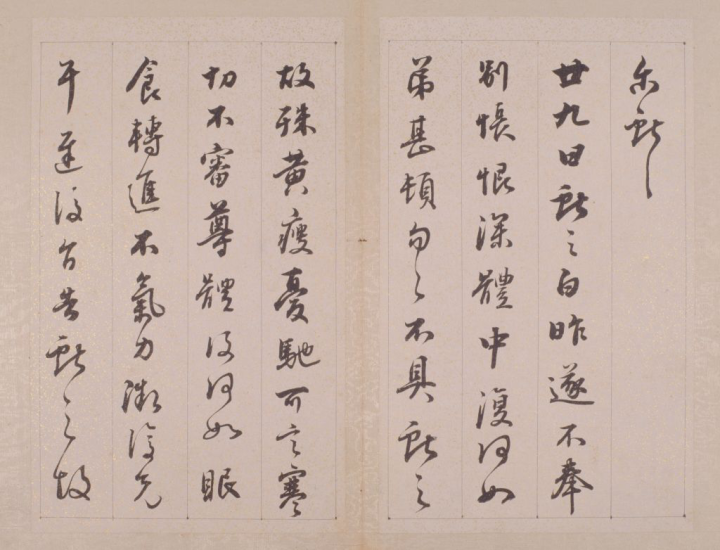 尔獻之
廿九日獻之白昨遂不奉
別悵恨深體中復何如
弟甚頓匆々不具獻之
故殊黃瘦憂馳可言寒
切不審尊體復何如眠
食轉進不氣力漸復充
耳遲復告獻之故